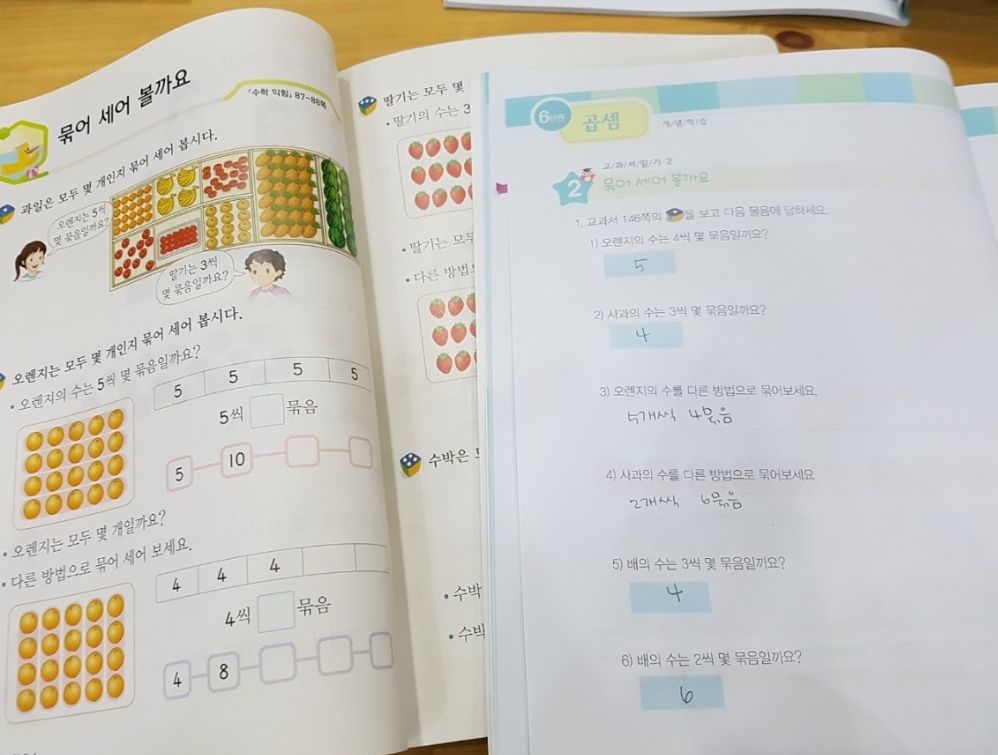 묶어 세어 볼까요
『수학 익힘』 87~88쪽
과일은 모두 몇 개인지 묶어 세어 봅시다.
오렌지는 5씩
몇 묶음일까요?
딸기는 3씩
몇 묶음일까요?
오렌지는 모두 몇 개인지 묶어 세어 봅시다.
• 오렌지의 수는 5씩 몇 묶음일까요?
5 5 5 5
5씩 묶음
5 10
• 오렌지는 모두 몇 개일까요?
• 다른 방법으로 묶어 세어 보세요.
4 4 4
4씩 묶음
4 8
딸기는 모두 몇
• 딸기의 수는 3
• 딸기는 모두
• 다른 방법
수박은
• 수박
• 수박
6단원 곱셈 개/념/학/습
교/과/서/읽/기 2
2 묶어 세어 볼까요
1. 교과서 146쪽의 을 보고 다음 물음에 답하세요
1) 오렌지의 수는 4씩 몇 묶음일까요?
5
2) 사과의 수는 3씩 몇 묶음일까요?
4
3) 오렌지의 수를 다른 방법으로 묶어보세요.
5개씩 4묶음
4) 사과의 수를 다른 방법으로 묶어보세요
2개씩 6묶음
5) 배의 수는 3씩 몇 묶음일까요?
4
6) 배의 수는 2씩 몇 묶음일까요?
6